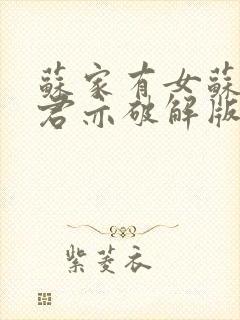 蘇家有女蘇
君亦破解版
紫菱衣